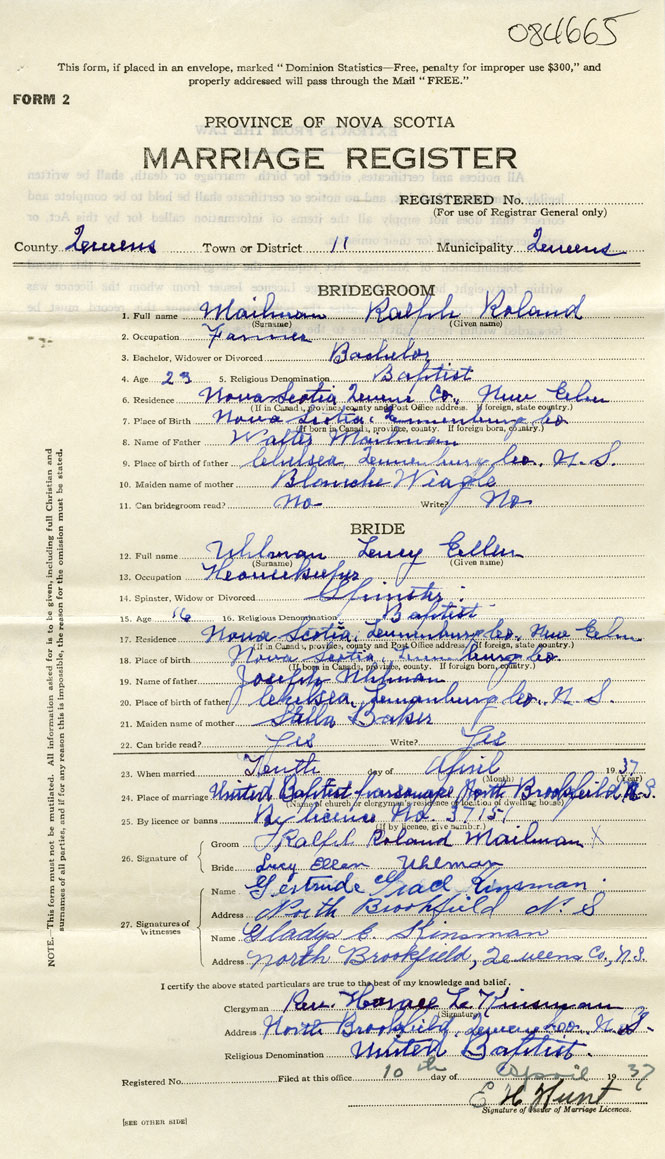 084665
This form, if placed in an envelope, marked “Dominion Statistics—Free, penalty for improper use $300,” and
properly addressed will pass through the Mail “FREE.”
FORM 2
PROVINCE OF NOVA SCOTIA
MARRIAGE REGISTER
REGISTERED No.
(For use of Registrar General only)
County Queens Town or District 11 Municipality Queens
BRIDEGROOM
1. Full name Mailman Ralph Roland
(Surname) (Given name)
2. Occupation Farmer
3. Bachelor, Widower or Divorced Bachelor
4. Age 23 5. Religious Denomination Baptist
6. Residence Nova Scotia Queens Co., New Elm
(If in Canada, province, county and Post Office address. If foreign, state country.)
7. Place of Birth Nova Scotia, Lunenburg Co.
(If born in Canada, province, county. If foreign born, country.)
8. Name of Father Walter Mailman
9. Place of birth of father Chelsea, Lunenburg Co., N.S.
10. Maiden name of mother Blanche Weagle
11. Can bridegroom read? No Write? No
BRIDE
12. Full name Uhlman Lucy Ellen
(Surname) (Given name)
13. Occupation Housekeeper
14. Spinster, Widow or Divorced Spinster
15. Age 16 16. Religious Denomination Baptist
17. Residence Nova Scotia, Lunenburg Co., New Elm
(If in Canada, province, county and Post Office address. If foreign, state country.)
18. Place of birth Nova Scotia, Lunenburg Co.
(If born in Canada, province, county. If foreign born, country.)
19. Name of father Joseph Uhlman
20. Place of birth of father Chelsea, Lunenburg Co., N.S.
21. Maiden name of mother Stella Baker
22. Can bride read? Yes Write? Yes
23. When married Tenth day of April 1937
(Month) (Year)
24. Place of marriage United Baptist Parsonage North Brookfield, N.S.
(Name of church or clergyman's residence or location of dwelling house)
25. By licence or banns By licence No. 37151
(If by licence, give number.)
26. Signature of
Groom Ralph Roland Mailman X
Bride Lucy Ellen Uhlman
27. Signatures of Witnesses
Name Gertrude Kinsman
Address North Brookfield N.S
Name Gladys C. Kinsman
Address North Brookfield, Queens Co., N.S.
I certify the above stated particulars are true to the best of my knowledge and belief.
Clergyman Rev. Horace L. Kinsman
(Signature)
Address North Brookfield, Queens Co., N.S.
Religious Denomination United Baptist.
Registered No. Filed at this office 10th day of April 1937
E H Hunt
Signature of Issuer of Marriage Licences.
[SEE OTHER SIDE]
NOTE.—This form must not be mutilated. All information asked for is to be given, including full Christian and
surnames of all parties, and if for any reason this is impossible, the reason for the omission must be stated.